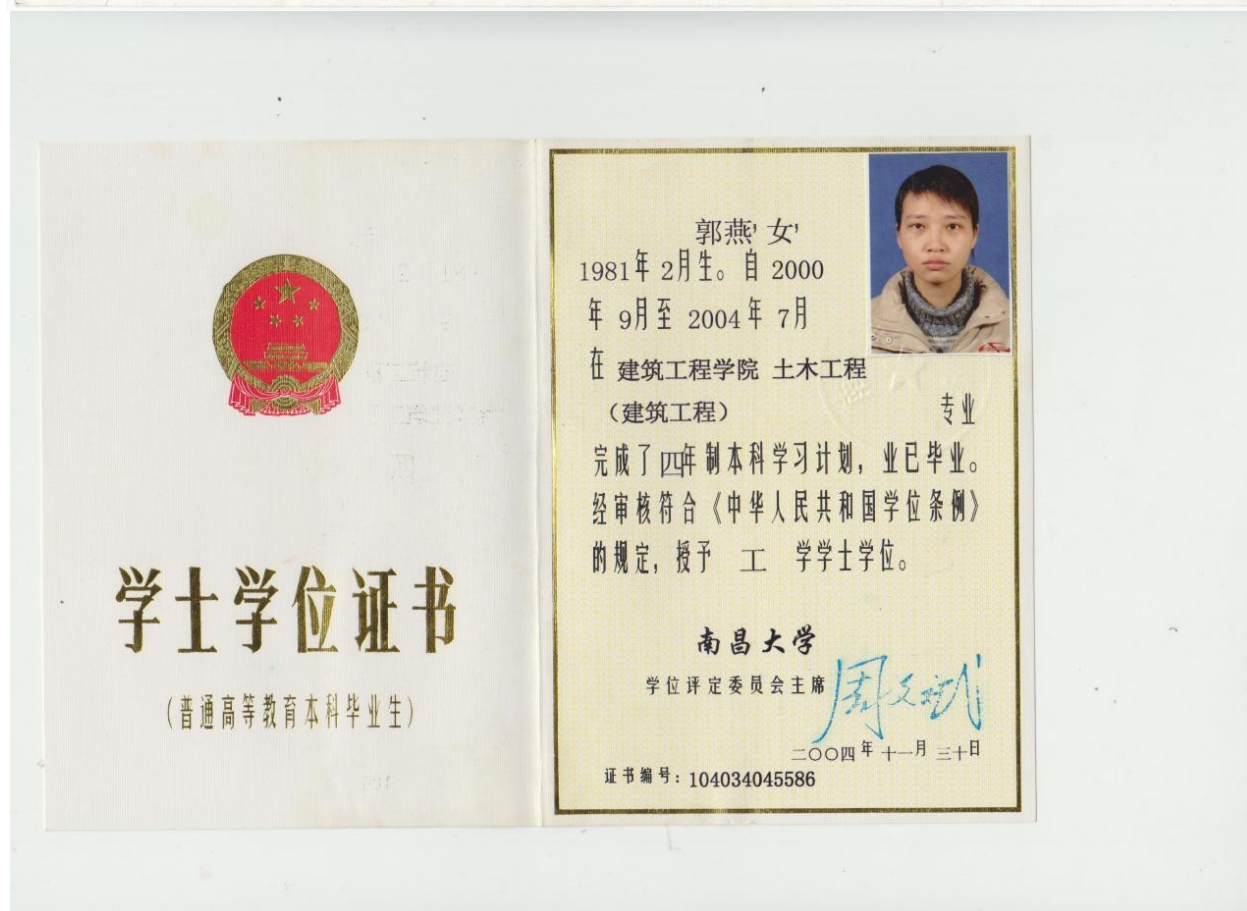 学士学位证书
(普通高等教育本科毕业生)
郭燕，女，
1981年 2月生。自 2000
年 9月至 2004年 7月
在 建筑工程学院 土木工程
（建筑工程） 专业
完成了四年制本科学习计划，业已毕业。
经审核符合《中华人民共和国学位条例》
的规定，授予 工 学学士学位。
南昌大学
学位评定委员会主席 周文斌
二〇〇四年 十一月 三十日
证书编号：104034045586